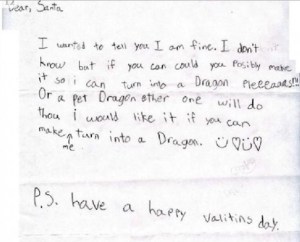 Dear, Santa
I wanted to tell you I am fine. I don't
know but if you can could you Posibly make
it so i can turn into a Dragon Pleeeaaas!!!
Or a pet Dragon other one will do
thou i would like it if you can
make me turn into a Dragon. ☺♡☺♡
P.S. have a happy valitins day.